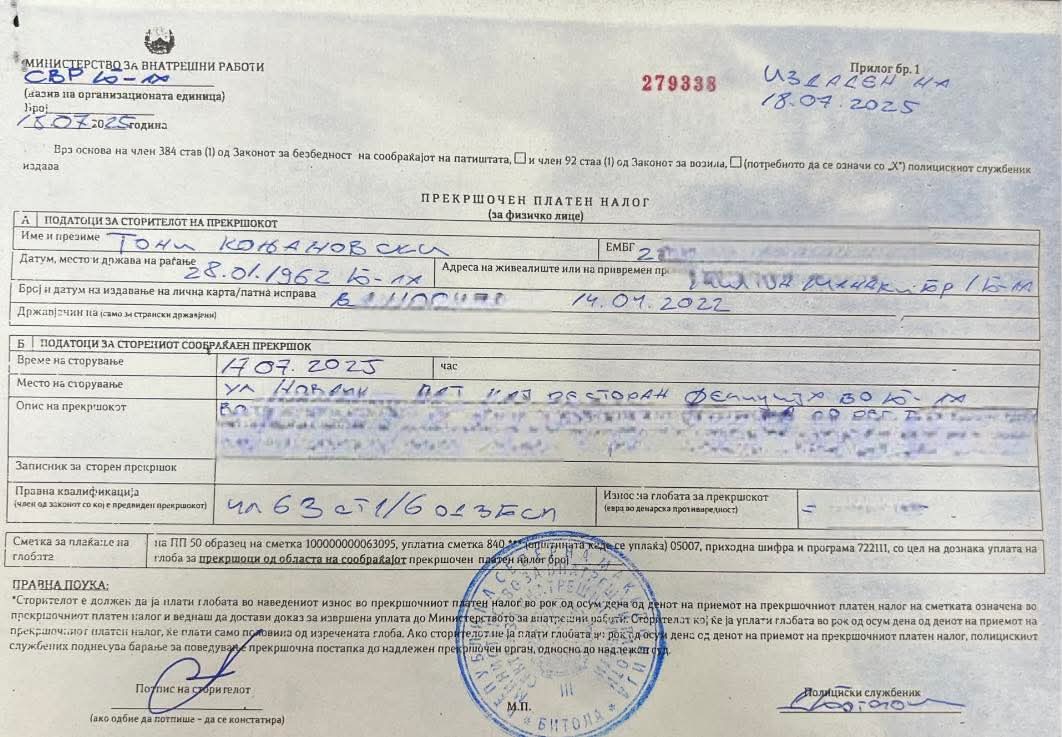 МИНИСТЕРСТВО ЗА ВНАТРЕШНИ РАБОТИ
СВР Б-ЛА
(назив на организационата единица)
Број
18.07 2025 година
279338
Прилог бр. 1
ИЗДАДЕН НА
18.07.2025
Врз основа на член 384 став (1) од Законот за безбедност на сообраќајот на патиштата, ☐ и член 92 став (1) од Законот за возила, ☐ (потребното да се означи со „X") полицискиот службеник
издава
ПРЕКРШОЧЕН ПЛАТЕН НАЛОГ
(за физичко лице)
А ПОДАТОЦИ ЗА СТОРИТЕЛОТ НА ПРЕКРШОКОТ
Име и презиме ТОНИ КОЊАНОВСКИ ЕМБГ
Датум, место и држава на раѓање 28.01.1962 Б-ЛА Адреса на живеалиште или на привремен
Број и датум на издавање на лична карта/патна исправа 14.01.2022
Државјанин на (само за странски државјани)
Б ПОДАТОЦИ ЗА СТОРЕНИОТ СООБРАЌАЕН ПРЕКРШОК
Време на сторување 17.07.2025 час
Место на сторување УЛ РЕСТОРАН ВО Б-ЛА
Опис на прекршокот
Записник за сторен прекршок
Правна квалификација
(член од законот со кој е предвиден прекршокот)
ЧЛ 63 СТ 1/6 ОД ЗБСП
Износ на глобата за прекршокот
(евра во денарска противвредност)
Сметка за плаќање на
глобата
на ПП 50 образец на сметка 100000000063095, уплатна сметка 840 *** (општината каде се уплаќа) 05007, приходна шифра и програма 722111, со цел на дознака уплата на
глоба за прекршоци од областа на сообраќајот прекршочен платен налог број
ПРАВНА ПОУКА:
*Сторителот е должен да ја плати глобата во наведениот износ во прекршочниот платен налог во рок од осум дена од денот на приемот на прекршочниот платен налог на сметката означена во
прекршочниот платен налог и веднаш да достави доказ за извршена уплата до Министерството за внатрешни работи. Сторителот кој ќе ја уплати глобата во рок од осум дена од денот на приемот на
прекршочниот платен налог, ќе плати само половина од изречената глоба. Ако сторителот не ја плати глобата во рок од осум дена од денот на приемот на прекршочниот платен налог, полицискиот
службеник поднесува барање за поведување прекршочна постапка до надлежен прекршочен орган, односно до надлежен суд.
Потпис на сторителот
(ако одбие да потпише – да се констатира)
М.П.
III
БИТОЛА
Полициски службеник